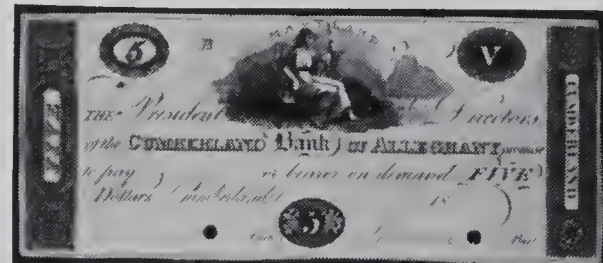 5 MARYLAND V
THE President Directors
of the CUMBERLAND Bank OF ALLEGANY promise
to pay or bearer on demand FIVE
Dollars Cumberland 18
5
FIVE
CUMBERLAND